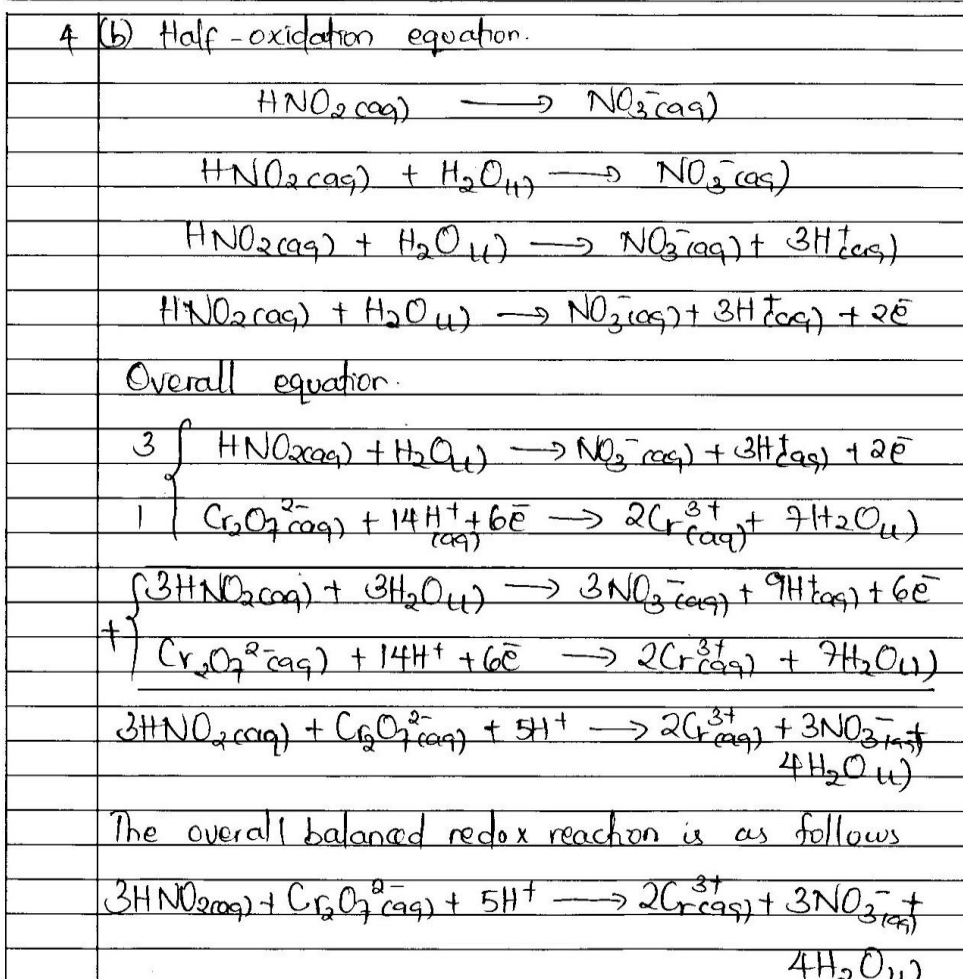 4 (b) Half-oxidation equation.
HNO₂(aq) → NO₃⁻(aq)
HNO₂(aq) + H₂O(l) → NO₃⁻(aq)
HNO₂(aq) + H₂O(l) → NO₃⁻(aq) + 3H⁺(aq)
HNO₂(aq) + H₂O(l) → NO₃⁻(aq) + 3H⁺(aq) + 2ē
Overall equation.
3 { HNO₂(aq) + H₂O(l) → NO₃⁻(aq) + 3H⁺(aq) + 2ē
1 { Cr₂O₇²⁻(aq) + 14H⁺(aq) + 6ē → 2Cr³⁺(aq) + 7H₂O(l)
+ { 3HNO₂(aq) + 3H₂O(l) → 3NO₃⁻(aq) + 9H⁺(aq) + 6ē
Cr₂O₇²⁻(aq) + 14H⁺ + 6ē → 2Cr³⁺(aq) + 7H₂O(l)
3HNO₂(aq) + Cr₂O₇²⁻(aq) + 5H⁺ → 2Cr³⁺(aq) + 3NO₃⁻(aq) +
4H₂O(l)
The overall balanced redox reaction is as follows
3HNO₂(aq) + Cr₂O₇²⁻(aq) + 5H⁺ → 2Cr³⁺(aq) + 3NO₃⁻(aq) +
4H₂O(l)